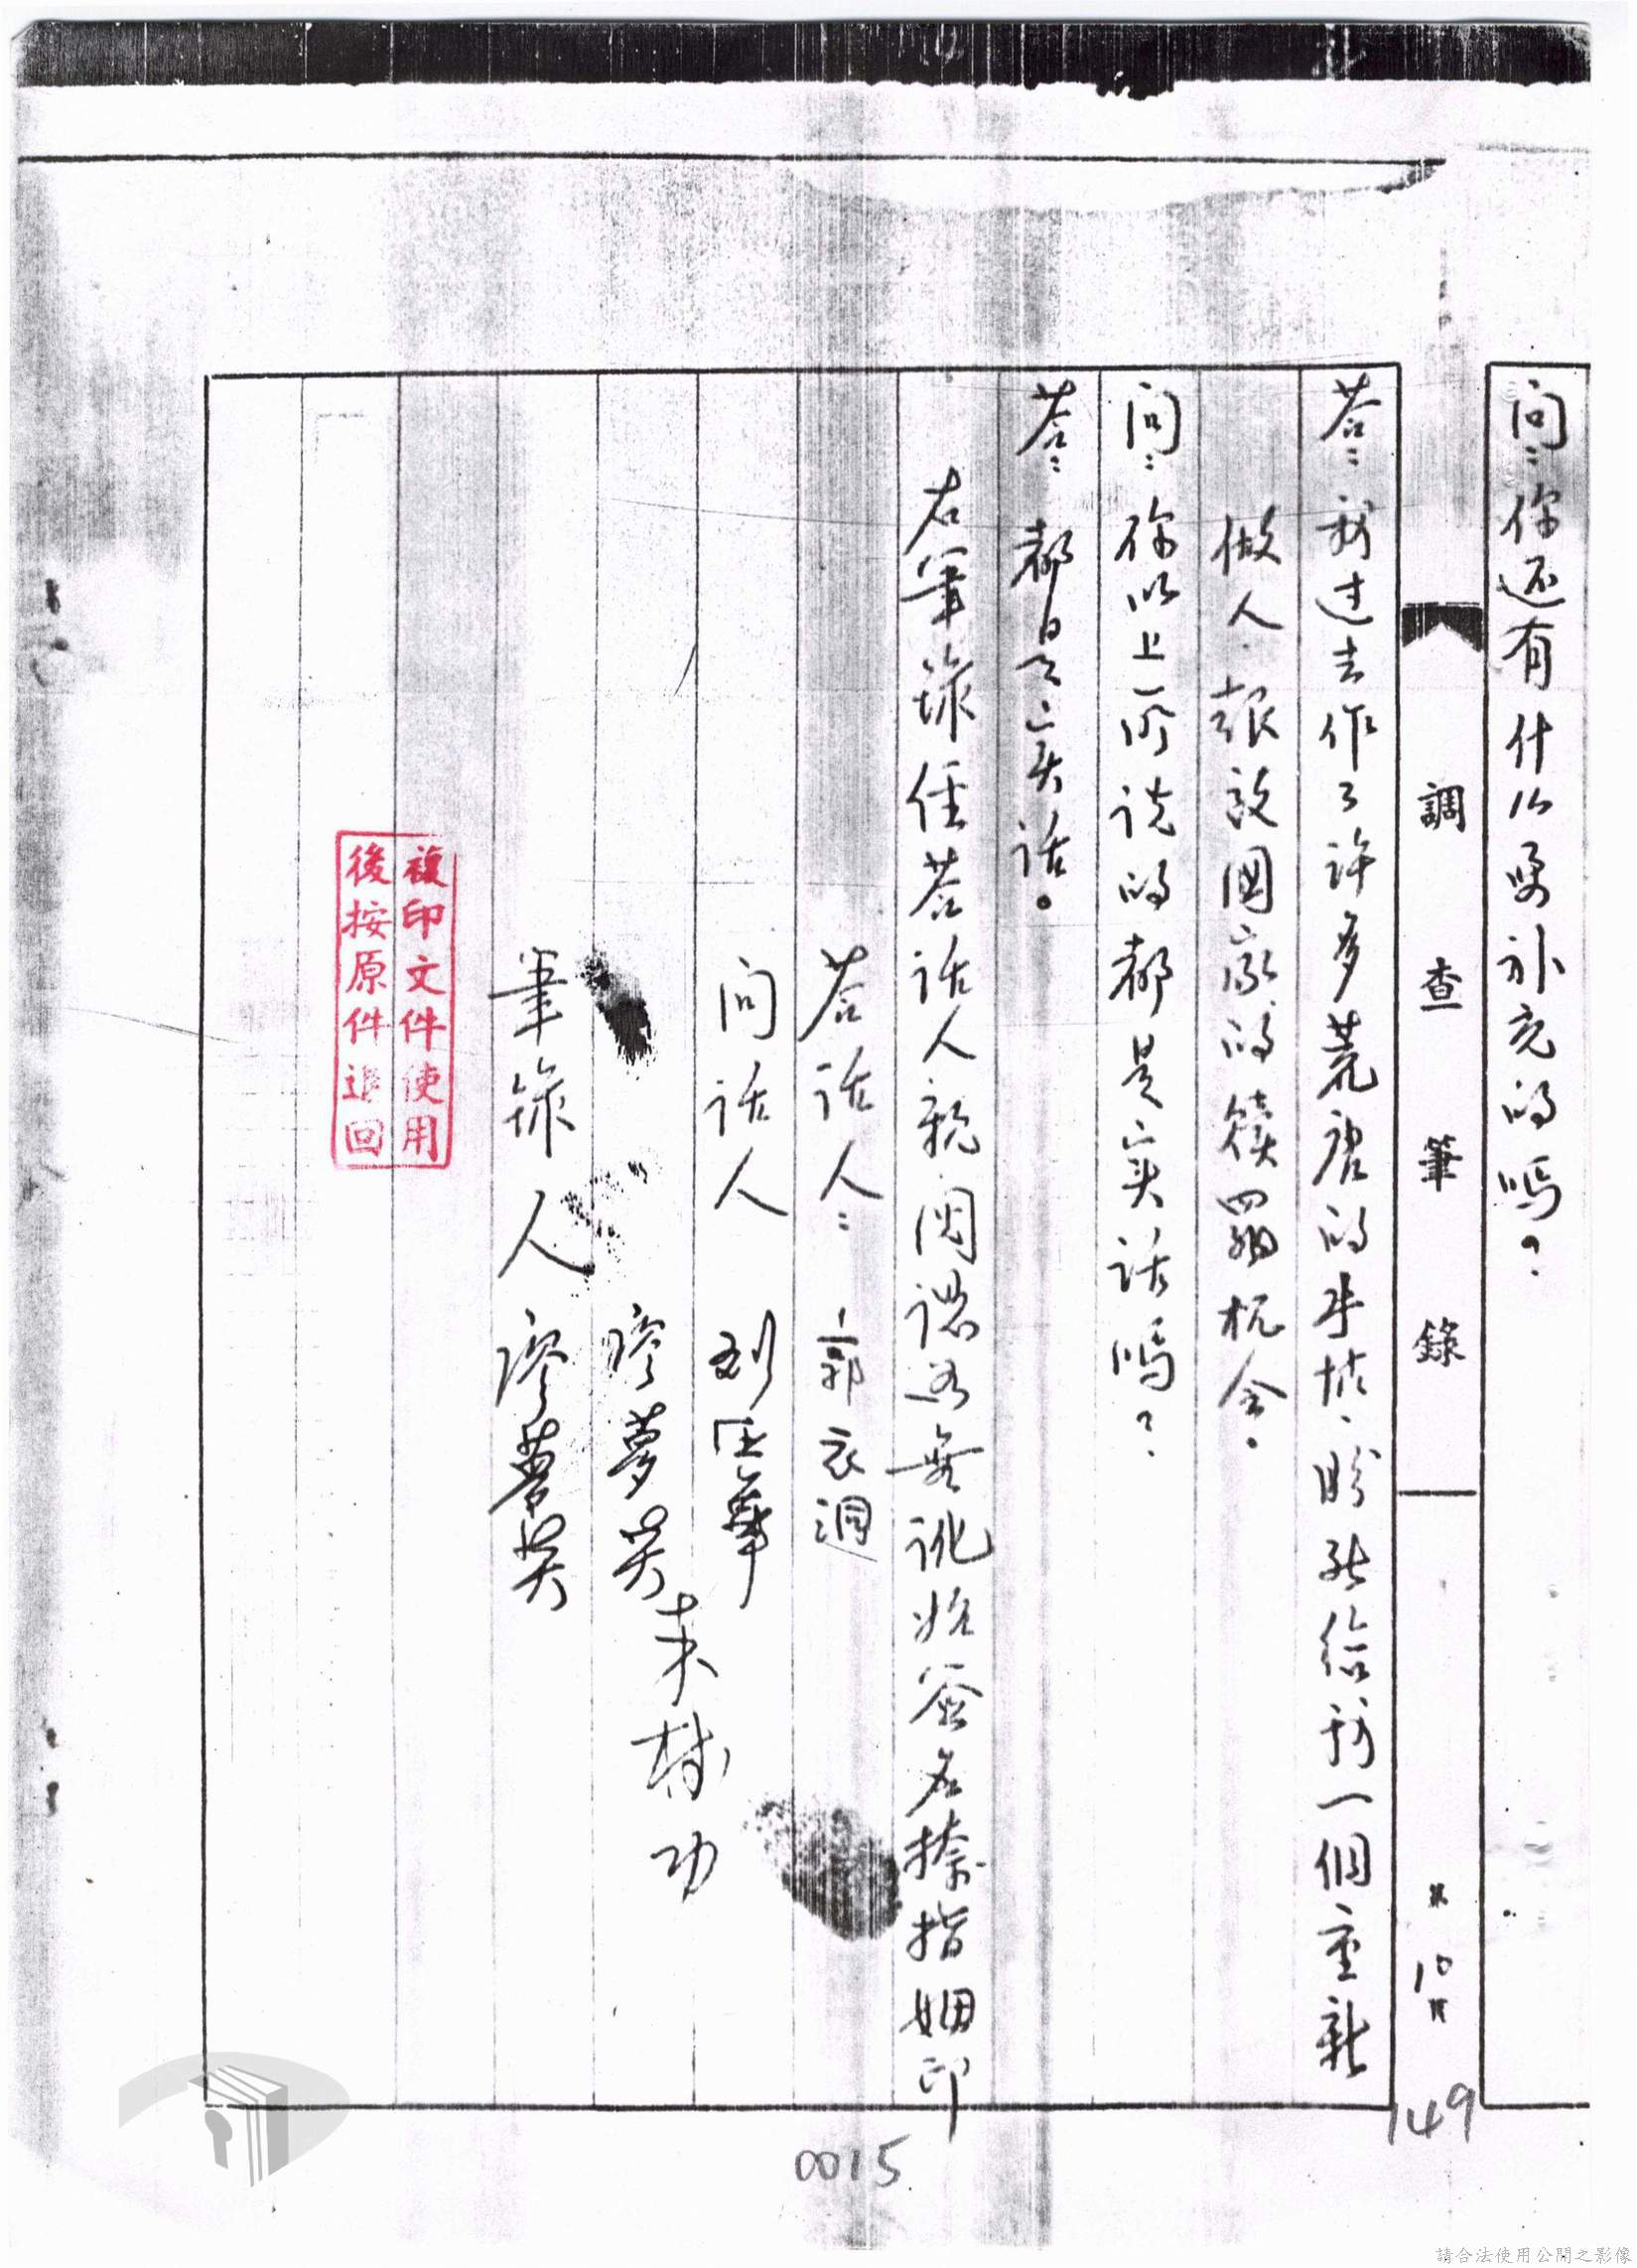 問：你还有什么要补充的嗎？
調查筆錄
第10頁
149
答：我过去作了许多荒唐的事情、盼能給我一個重新
做人、報效國家的贖罪机会。
问：你以上所说的都是实话嗎？
答：都是实话。
右筆錄經答話人親閱認為無訛始簽名捺指姆印
答話人：郭衣洞
问話人 劉展華
廖蕚英
朱樹功
筆錄人 廖蕚英
複印文件使用
後按原件退回
0015
請合法使用公開之影像